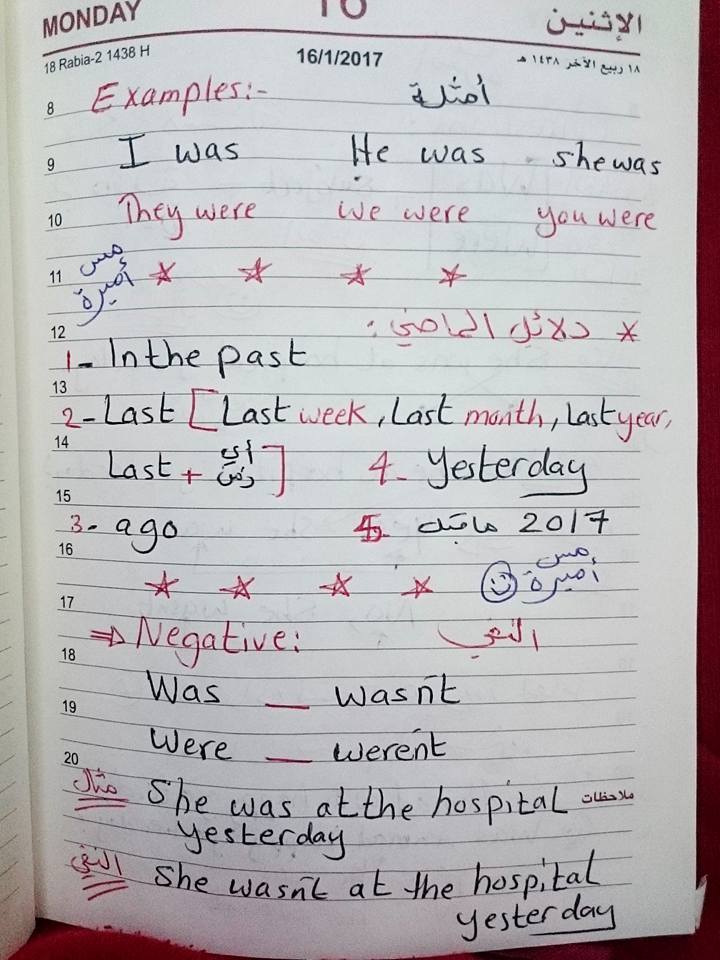 MONDAY 16 الإثنين
18 Rabia-2 1438 H 16/1/2017 ١٨ ربيع الآخر ١٤٣٨ هـ
8 Examples:- أمثلة
9 I was He was she was
10 They were we were you were
11 مس أميرة
12 * دلائل الماضي:
1- In the past
13
2- Last [Last week, Last month, Last year,
14 Last + أي زمن] 4- Yesterday
15
3- ago 5- ماقبل 2017
16
مس أميرة
17
⇒ Negative: النفي
18
Was — wasn't
19
Were — weren't
20
مثال She was at the hospital ملاحظات
yesterday
النفي She wasn't at the hospital
yesterday